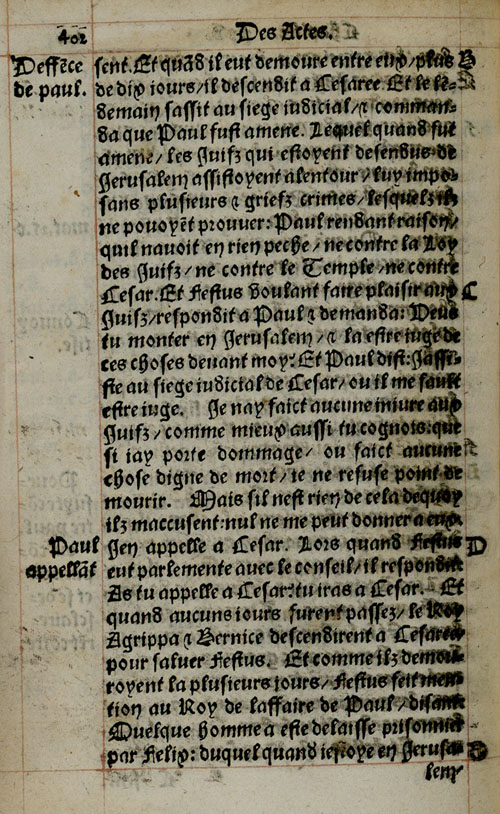 402 Des Actes.
Deffēce
de paul.
sent. Et quād il eut demoure entre eux/plus B
de dix iours/il descendit a Cesaree. Et le lē-
demain sassit au siege iudicial/⁊ comman-
da que Paul fust amene. Lequel quand fut
amene/les Juifz qui estoyent desendus de
Jerusalem assistoyent alentour/luy impo-
sans plusieurs ⁊ griefz crimes/lesquelz ilz
ne pouoyēt prouuer: Paul rendant raison/
quil nauoit en rien peche/ne contre la Loy
des Juifz/ne contre le Temple/ne contre
Cesar. Et Festus voulant faire plaisir aux C
Juifz/respondit a Paul ⁊ demanda: Veux
tu monter en Jerusalem/⁊ la estre iuge de
ces choses deuant moy? Et Paul dist: Jassi-
ste au siege iudicial de Cesar/ou il me fault
estre iuge. Je nay faict aucune iniure aux
Juifz/comme mieux aussi tu cognois: que
si iay porte dommage/ou faict aucune
chose digne de mort/ie ne refuse point de
mourir. Mais sil nest rien de cela dequoy
ilz maccusent: nul ne me peut donner a eux.
Paul
appellāt
Jen appelle a Cesar. Lors quand Festus D
eut parlemente auec le conseil/il respondit
As tu appelle a Cesar? tu iras a Cesar. Et
quand aucuns iours furent passez/le Roy
Agrippa ⁊ Bernice descendirent a Cesaree
pour saluer Festus. Et comme ilz demou-
royent la plusieurs iours/Festus feit men-
tion au Roy de laffaire de Paul/disant
Quelque homme a este delaisse prisonnier
par Felix: duquel quand iestoye en Jerusa-
lem